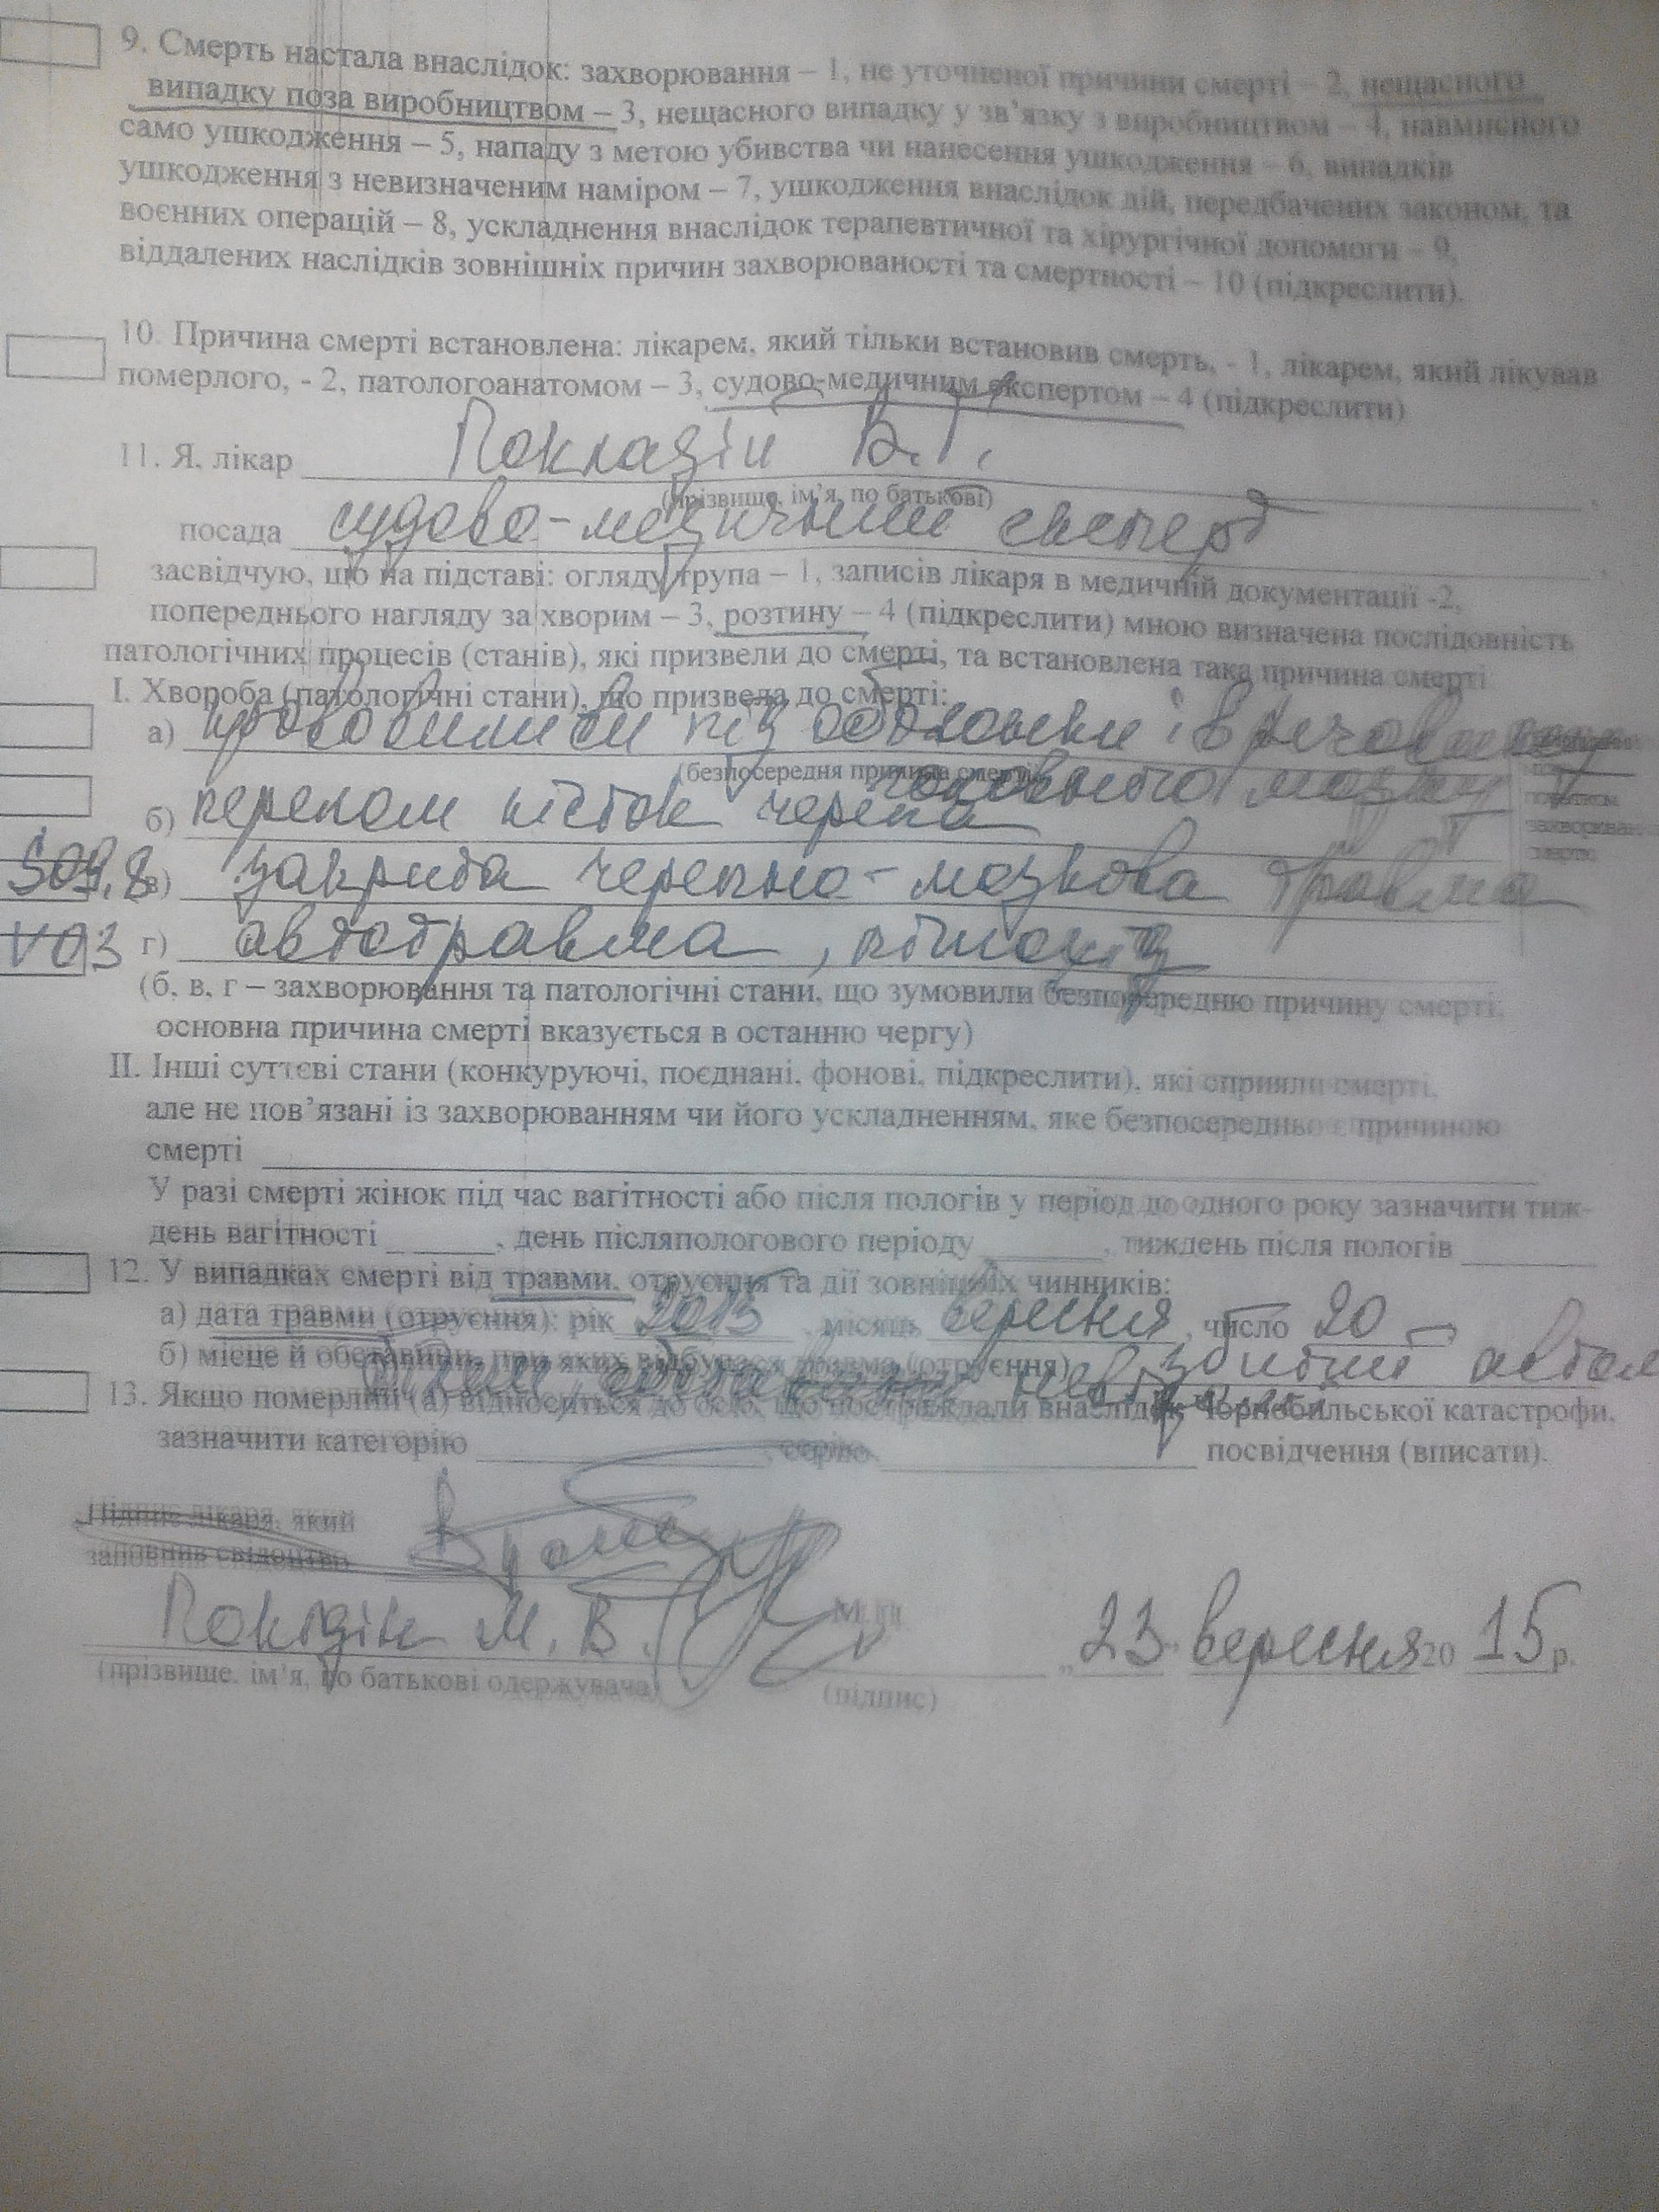 9. Смерть настала внаслідок: захворювання – 1, не уточненої причини смерті – 2, нещасного
випадку поза виробництвом – 3, нещасного випадку у зв’язку з виробництвом – 4, навмисного
само ушкодження – 5, нападу з метою убивства чи нанесення ушкодження – 6, випадків
ушкодження з невизначеним наміром – 7, ушкодження внаслідок дій, передбачених законом, та
воєнних операцій – 8, ускладнення внаслідок терапевтичної та хірургічної допомоги – 9,
віддалених наслідків зовнішніх причин захворюваності та смертності – 10 (підкреслити).
10. Причина смерті встановлена: лікарем, який тільки встановив смерть, - 1, лікарем, який лікував
померлого, - 2, патологоанатомом – 3, судово-медичним експертом – 4 (підкреслити)
11. Я, лікар В.Г.
(прізвище, ім’я, по батькові)
посада судово-медичний експерт
засвідчую, що на підставі: огляду трупа – 1, записів лікаря в медичній документації -2,
попереднього нагляду за хворим – 3, розтину – 4 (підкреслити) мною визначена послідовність
патологічних процесів (станів), які призвели до смерті, та встановлена така причина смерті
І. Хвороба (патологічні стани), що призвела до смерті:
а) крововиливи під оболонки і в речовину
(безпосередня причина смерті) головного мозку
б) перелом кісток черепа
S09.8 в) закрита черепно-мозкова травма
V03 г) автотравма, пішохід
(б, в, г – захворювання та патологічні стани, що зумовили безпосередню причину смерті;
основна причина смерті вказується в останню чергу)
ІІ. Інші суттєві стани (конкуруючі, поєднані, фонові, підкреслити), які сприяли смерті,
але не пов’язані із захворюванням чи його ускладненням, яке безпосередньо є причиною
смерті
У разі смерті жінок під час вагітності або після пологів у період до одного року зазначити тиж-
день вагітності , день післяпологового періоду , тиждень після пологів
12. У випадках смерті від травми, отруєння та дії зовнішніх чинників:
а) дата травми (отруєння): рік 2015 , місяць вересня , число 20
б) місце й обставини, при яких відбулася травма (отруєння) збитий автом
13. Якщо померлий (а) відноситься до осіб, що постраждали внаслідок Чорнобильської катастрофи,
зазначити категорію , серію посвідчення (вписати).
Підпис лікаря, який
заповнив свідоцтво
М.В. М.П. „23 вересня 20 15 р.
(прізвище, ім’я, по батькові одержувача) (підпис)